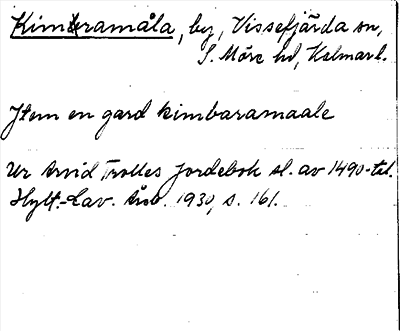 Kimbramåla, by, Vissefjärda sn,
S. Möre hd, Kalmar l.
Item en gard kimbaramaale
Ur Arvid Trolles Jordebok sl. av 1490-tal.
Hylt.-Cav. Årsb. 1930, s. 161.